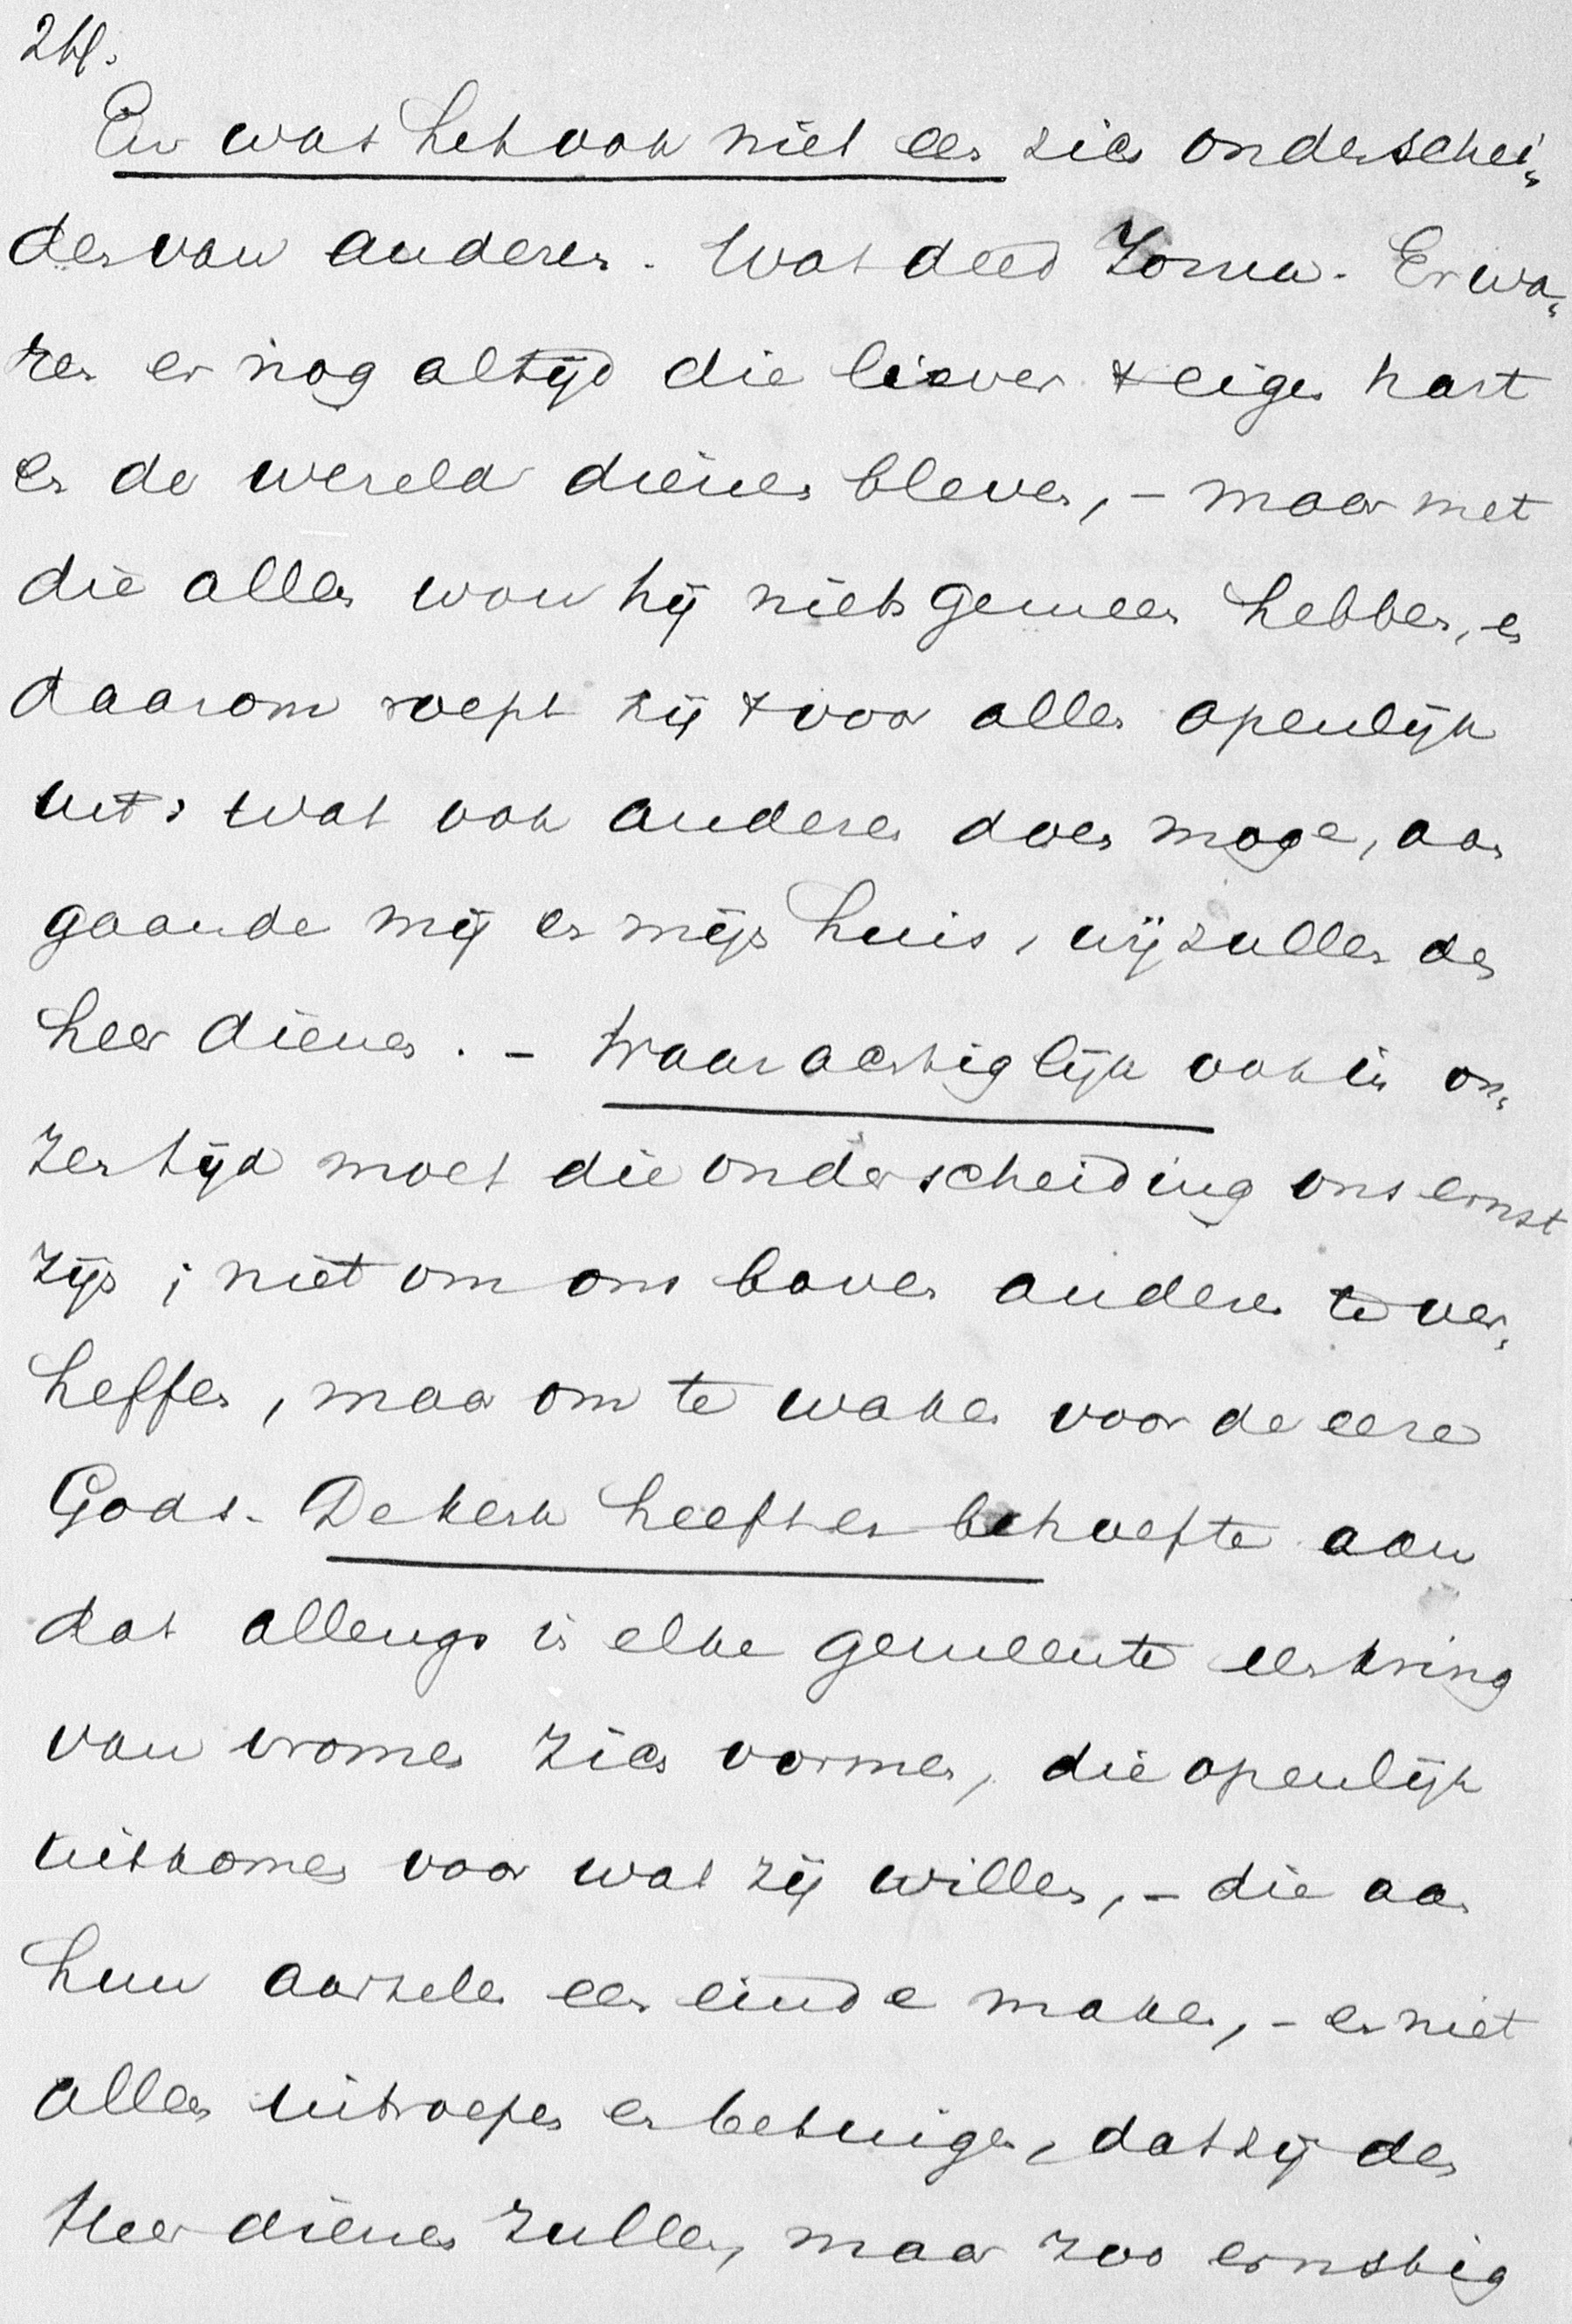 24.
En was het ook niet een zich onderschei„
den van anderen. Wat deed Jozua. Er wa„
ren er nog altijd die liever 't eigen hart
en de wereld dienen bleven, – maar met
die allen wou hij niets gemeen hebben, en
daarom roept hij 't voor allen openlijk
uit: wat ook anderen doen mogen, aan
gaande mij en mijn huis, wij zullen den
heer dienen. – Waarachtiglijk ook in on„
zen tijd moet die onderscheiding ons ernst
zijn; niet om ons boven anderen te ver„
heffen, maar om te waken voor de eere
Gods. De kerk heeft er behoefte aan
dat allengs in elke gemeente een kring
van vromen zich vormen, die openlijk
uitkomen voor wat zij willen, – die aan
hun aarzelen een einde maken, – en niet
alleen uitroepen en betuigen, dat zij den
Heer dienen zullen, maar zoo ernstig